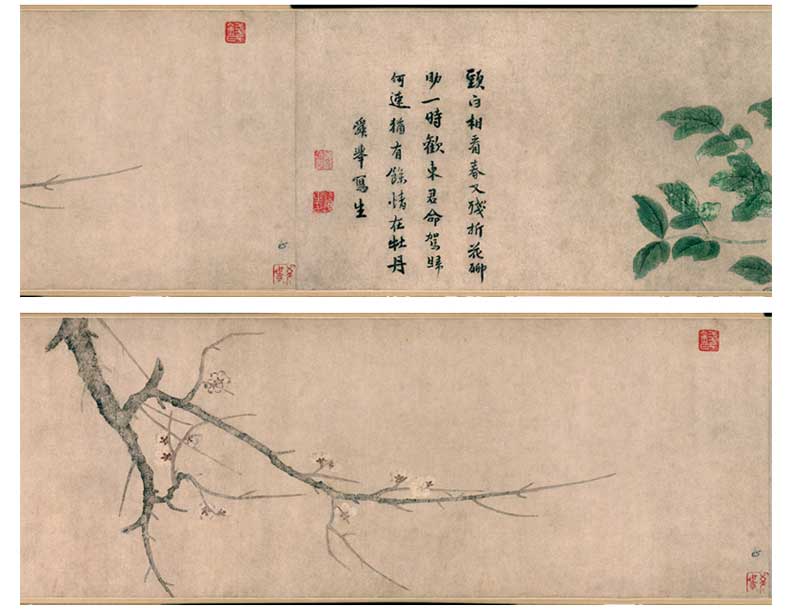 頭白相看春又殘折花聊
助一時歡東君命駕歸
何速猶有餘情在牡丹
舜舉寫生